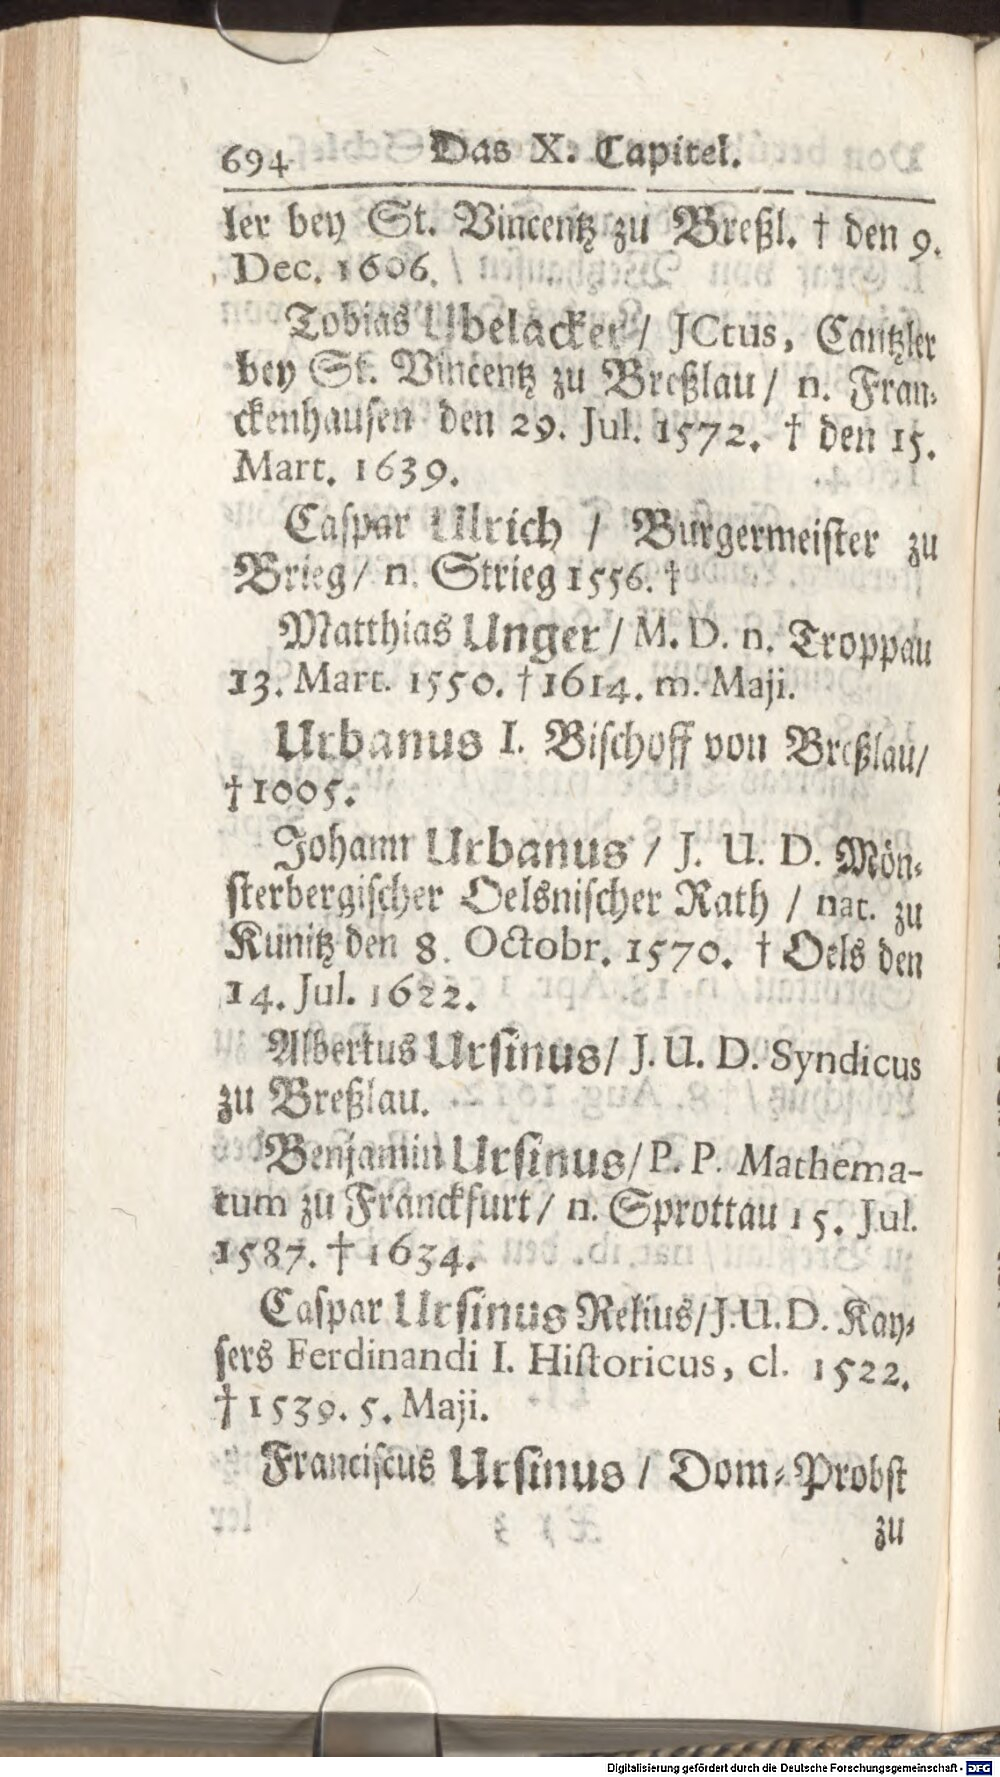 694 Das X. Capitel.
ler bey St. Vincentz zu Breßl. † den 9.
Dec. 1606.
Tobias Ubelacker / JCtus, Cantzler
bey St. Vincentz zu Breßlau / n. Fran-
ckenhausen den 29. Jul. 1572. † den 15.
Mart. 1639.
Caspar Ulrich / Burgermeister zu
Brieg / n. Strieg 1556. †
Matthias Unger / M. D. n. Troppau
13. Mart. 1550. † 1614. m. Maji.
Urbanus I. Bischoff von Breßlau /
† 1005.
Johann Urbanus / J. U. D. Mön-
sterbergischer Oelsnischer Rath / nat. zu
Kunitz den 8. Octobr. 1570. † Oels den
14. Jul. 1622.
Albertus Ursinus / J. U. D. Syndicus
zu Breßlau.
Benjamin Ursinus / P. P. Mathema-
tum zu Franckfurt / n. Sprottau 15. Jul.
1587. † 1634.
Caspar Ursinus Relius / J. U. D. Kay-
sers Ferdinandi I. Historicus, cl. 1522.
† 1539. 5. Maji.
Franciscus Ursinus / Dom-Probst
zu
Digitalisierung gefördert durch die Deutsche Forschungsgemeinschaft - DFG